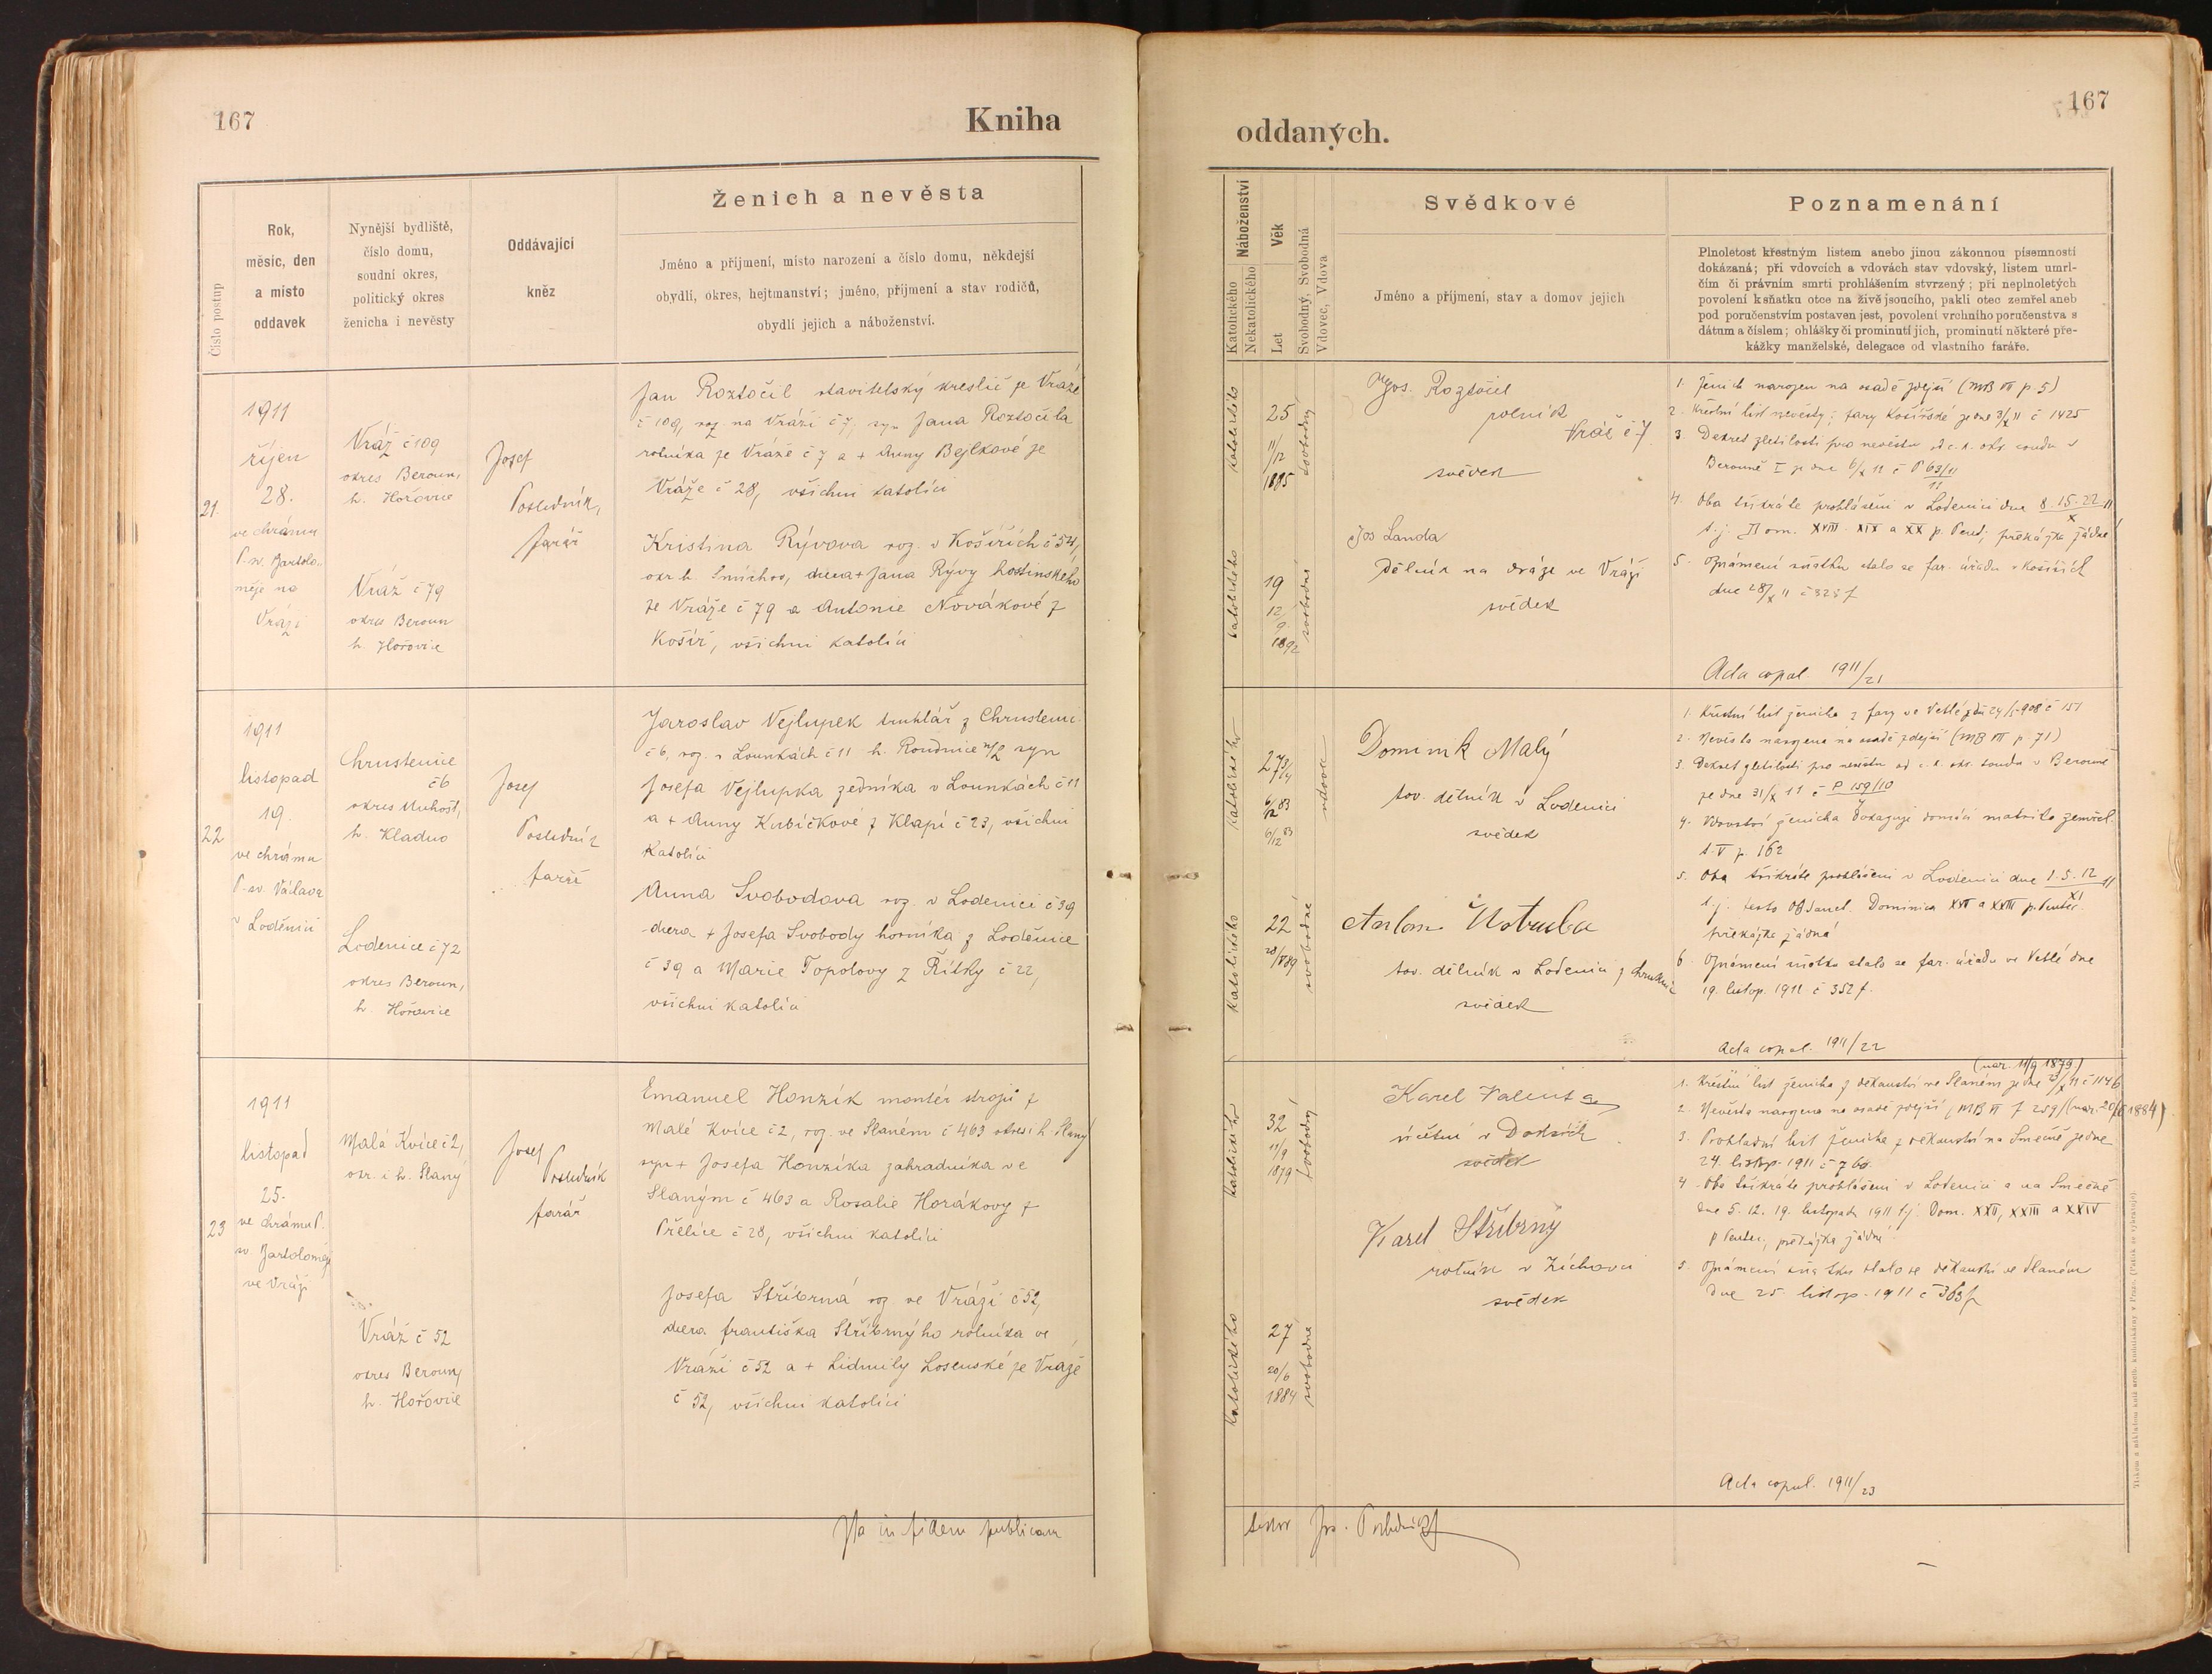 167
Kniha
Číslo postup
Rok,
měsíc, den
a místo
oddavek
Nynější bydliště,
číslo domu,
soudní okres,
politický okres
ženicha i nevěsty
Oddávající
kněz
Ženich a nevěsta
Jméno a příjmení, místo narození a číslo domu, někdejší
obydlí, okres, hejtmanství; jméno, příjmení a stav rodičů,
obydlí jejich a náboženství.
21.
1911
říjen
28.
ve chrámu
P. sv. Bartolo-
měje na
Vráži
Vráž č 109
okres Beroun,
h. Hořovice
Vráž č 79
okres Beroun
h. Hořovice
Josef
Posledník,
farář
Jan Roztočil stavitelský kreslič ze Vráže
č 109, roz. na Vráži č 7, syn Jana Roztočila
rolníka ze Vráže č 7 a + Anny Bejlkové ze
Vráže č 28, všichni katolíci
Kristina Rývova roz. v Košířích č 54,
okr. h. Smíchov, dcera + Jana Rývy hostinského
ze Vráže č 79 a Antonie Novákové z
Košíř, všichni katolíci
22
1911
listopad
19.
ve chrámu
P. sv. Václava
v Loděnici
Chrustenice
č 6
okres Unhošť,
h. Kladno
Lodenice č 72
okres Beroun,
h. Hořovice
Josef
Posledník
farář
Jaroslav Vejlupek truhlář z Chrustenic
č 6, roz. v Lounkách č 11 h. Roudnice n/L syn
Josefa Vejlupka zedníka v Lounkách č 11
a + Anny Kubíčkové z Klapí č 23, všichni
katolíci
Anna Svobodova roz. v Lodenici č 39
dcera + Josefa Svobody horníka z Loděnice
č 39 a Marie Topolovy z Řítky č 22,
všichni katolíci
23
1911
listopad
25.
ve chrámu P.
sv. Bartoloměje
ve Vráži
Malá Kvíce č 2,
okr. i h. Slaný
Vráž č 52
okres Beroun,
h. Hořovice
Josef
Posledník
farář
Emanuel Honzík montér strojů z
Malé Kvíce č 2, roz. ve Slaném č 463 okres i h. Slaný
syn + Josefa Honzíka zahradníka ve
Slaným č 463 a Rosalie Horákovy z
Přelíce č 28, všichni katolíci
Josefa Stříbrná roz ve Vráži č 52,
dcera františka Stříbrnýho rolníka ve
Vráži č 52 a + Lidmily Losenské ze Vráže
č 52, všichni katolíci
Ita in fidem publicam
167
oddaných.
Náboženství
Katolického
Nekatolického
Věk
Let
Svobodný, Svobodná
Vdovec, Vdova
Svědkové
Jméno a příjmení, stav a domov jejich
Poznamenání
Plnoletost křestným listem anebo jinou zákonnou písemností
dokázaná; při vdovcích a vdovách stav vdovský, listem umrl-
čím či právním smrti prohlášením stvrzený; při neplnoletých
povolení k sňatku otce na živě jsoucího, pakli otec zemřel aneb
pod poručenstvím postaven jest, povolení vrchního poručenstva s
dátum a číslem; ohlášky či prominutí jich, prominutí některé pře-
kážky manželské, delegace od vlastního faráře.
katolického
25
11/12
1885
svobodný
katolického
19
12/9
1892
svobodná
Jos. Roztočil
rolník
Vráž č 7
svědek
Jos Landa
Dělník na dráze ve Vráži
svědek
1. Ženich narozen na osadě zdejší (MB VI p. 5)
2. Křestní list nevěsty z fary Košířské ze dne 3/X 11 č 1425
3. Dekret zletilosti pro nevěstu od c. k. okr. soudu v
Berouně I ze dne 6/X 11 č P 63/11
11
4. Oba třikráte prohlášeni v Lodenici dne 8. 15. 22. 11
X
t. j. Dom. XVIII. XIX a XX p. Pent; překážka žádná
5. Oznámení sňatku stalo se far. úřadu v Košířích
dne 28/X 11 č 323 f
Acta copul. 1911/21
katolického
27 3/4
6/12 83
6/12 83
vdovec
katolického
22
svobodná
Dominik Malý
tov. dělník v Lodenici
svědek
Antonín Kotruba
tov. dělník v Lodenici z
svědek
1. Křestní list ženicha z fary ve Vetlé ze dne 24/5 908 č 151
2. Nevěsta narozena na osadě zdejší (MB VI p. 71)
3. Dekret zletilosti pro nevěstu od c. k. okr. soudu v Berouně
ze dne 31/X 11 č P 159/10
4. Vdovství ženicha dokazuje domácí matrika zemřel.
t. V p. 162
5. Oba třikráte prohlášeni v Lodenici dne 1. 5. 12 11
XI
t. j. festo O. Sanct. Dominica XXII a XXIII p. Pentec.
překážka žádná
6. Oznámení sňatku stalo se far. úřadu ve Vetlé dne
19. listop. 1911 č 352 f.
Acta copul. 1911/22
katolického
32
11/9
1879
svobodný
katolického
27
20/6
1884
svobodná
Karel Valenta
účetní v Doksích
svědek
Karel Stříbrný
rolník v Zíchovci
svědek
(nar. 11/9 1879)
1. Křestní list ženicha z děkanství ve Slaném ze dne 11 č 1146
2. Nevěsta narozena na osadě zdejší (MB VI f 259) (nar. 20/6 1884)
3. Prohlašní list ženicha z děkanství na Smečně ze dne
24. listop. 1911 č 760.
4. Oba třikráte prohlášeni v Lodenici a na Smečně
dne 5. 12. 19. listopadu 1911 t. j. Dom. XXII, XXIII a XXIV
p Pentec, překážka žádná.
5. Oznámení sňatku stalo se děkanství ve Slaném
dne 25. listop. 1911 č 363 f
Acta copul. 1911/23
testor Jos. Posledník